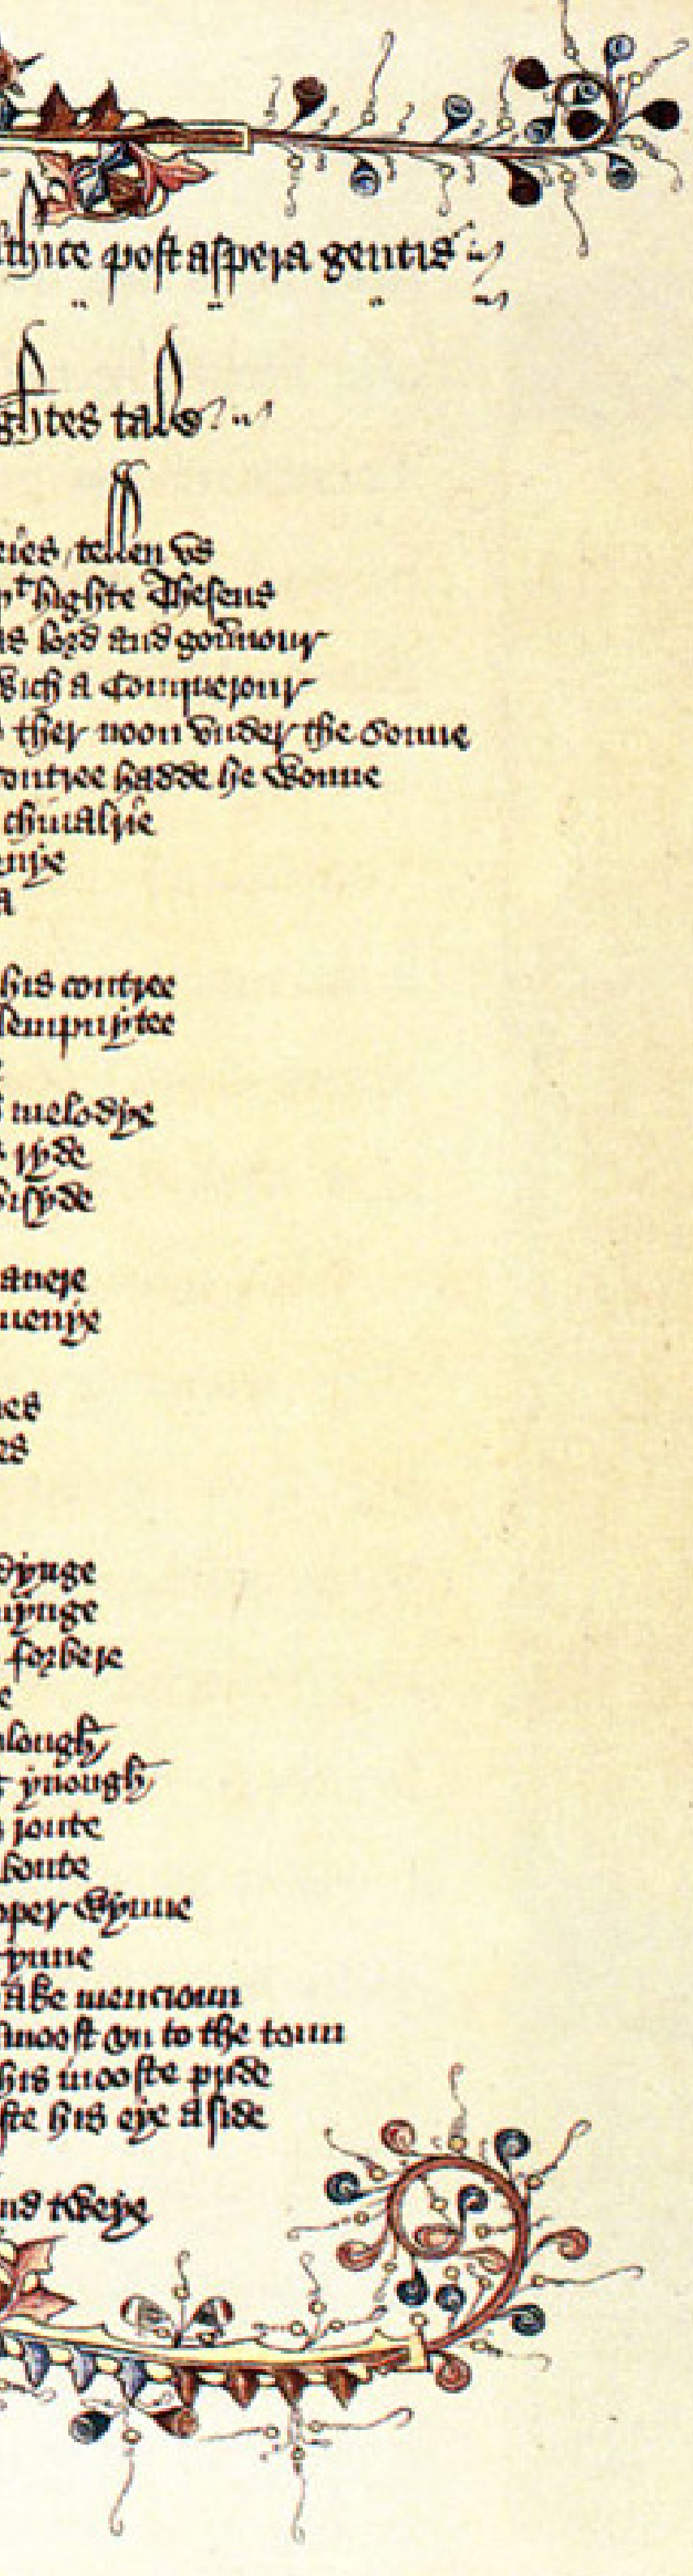 thice post aspera gentis
ghtes tale
ries / tellen vs
þͭ highte Theseus
as lord and gouͫnour
swich a Conquerour
ther noon vnder the sonne
contree hadde he wonne
chiualrie
enye
a
his contree
solempnytee
melodye
ryde
bisyde
anere
uenye
nes
es
dynge
nynge
forbere
e
nlough
ynough
route
aboute
oper wynne
ynne
ake mencioun
almoost vn to the toun
his mooste pride
ste his eye aside
nd tweye